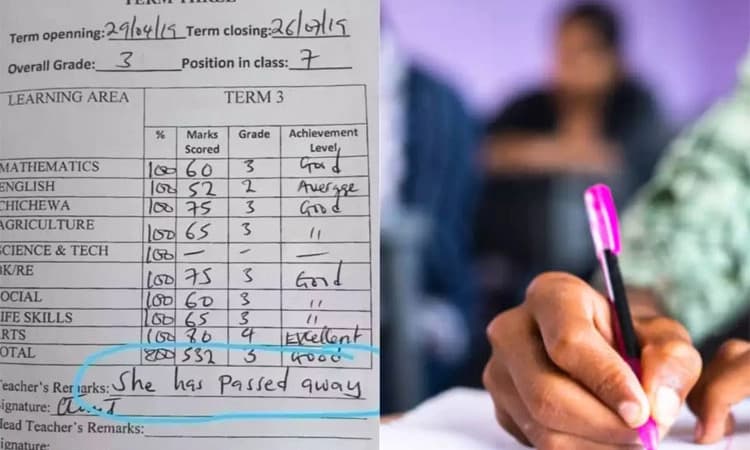 TERM THREE
Term openning: 29/04/19 Term closing: 26/07/19
Overall Grade: 3 Position in class: 7
LEARNING AREA TERM 3
% Marks Scored Grade Achievement Level
MATHEMATICS 100 60 3 Good
ENGLISH 100 52 2 Average
CHICHEWA 100 75 3 Good
AGRICULTURE 100 65 3 "
SCIENCE & TECH 100 — - —
BK/RE 100 75 3 Good
SOCIAL 100 60 3 "
LIFE SKILLS 100 65 3 "
ARTS 100 80 4 Excellent
TOTAL 800 532 3 Good
Teacher's Remarks: She has passed away
Signature:
Head Teacher's Remarks:
Signature: